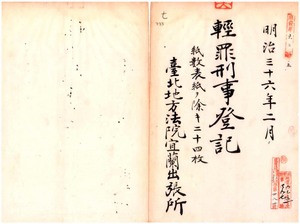 明治三十六年二月
輕罪刑事登記
紙數表紙ノ除キ二十四枚
臺北地方法院宜蘭出張所